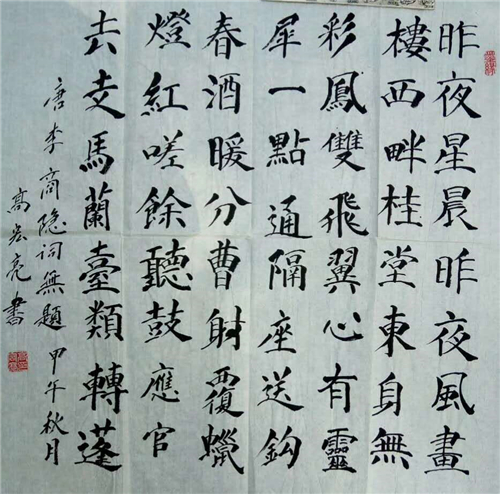 昨夜星晨昨夜風畫
樓西畔桂堂東身無
彩鳳雙飛翼心有靈
犀一點通隔座送鈎
春酒暖分曹射覆蠟
燈紅嗟餘聽鼓應官
去支馬蘭臺類轉蓬
唐李商隐词無題 甲午秋月
高宏亮書